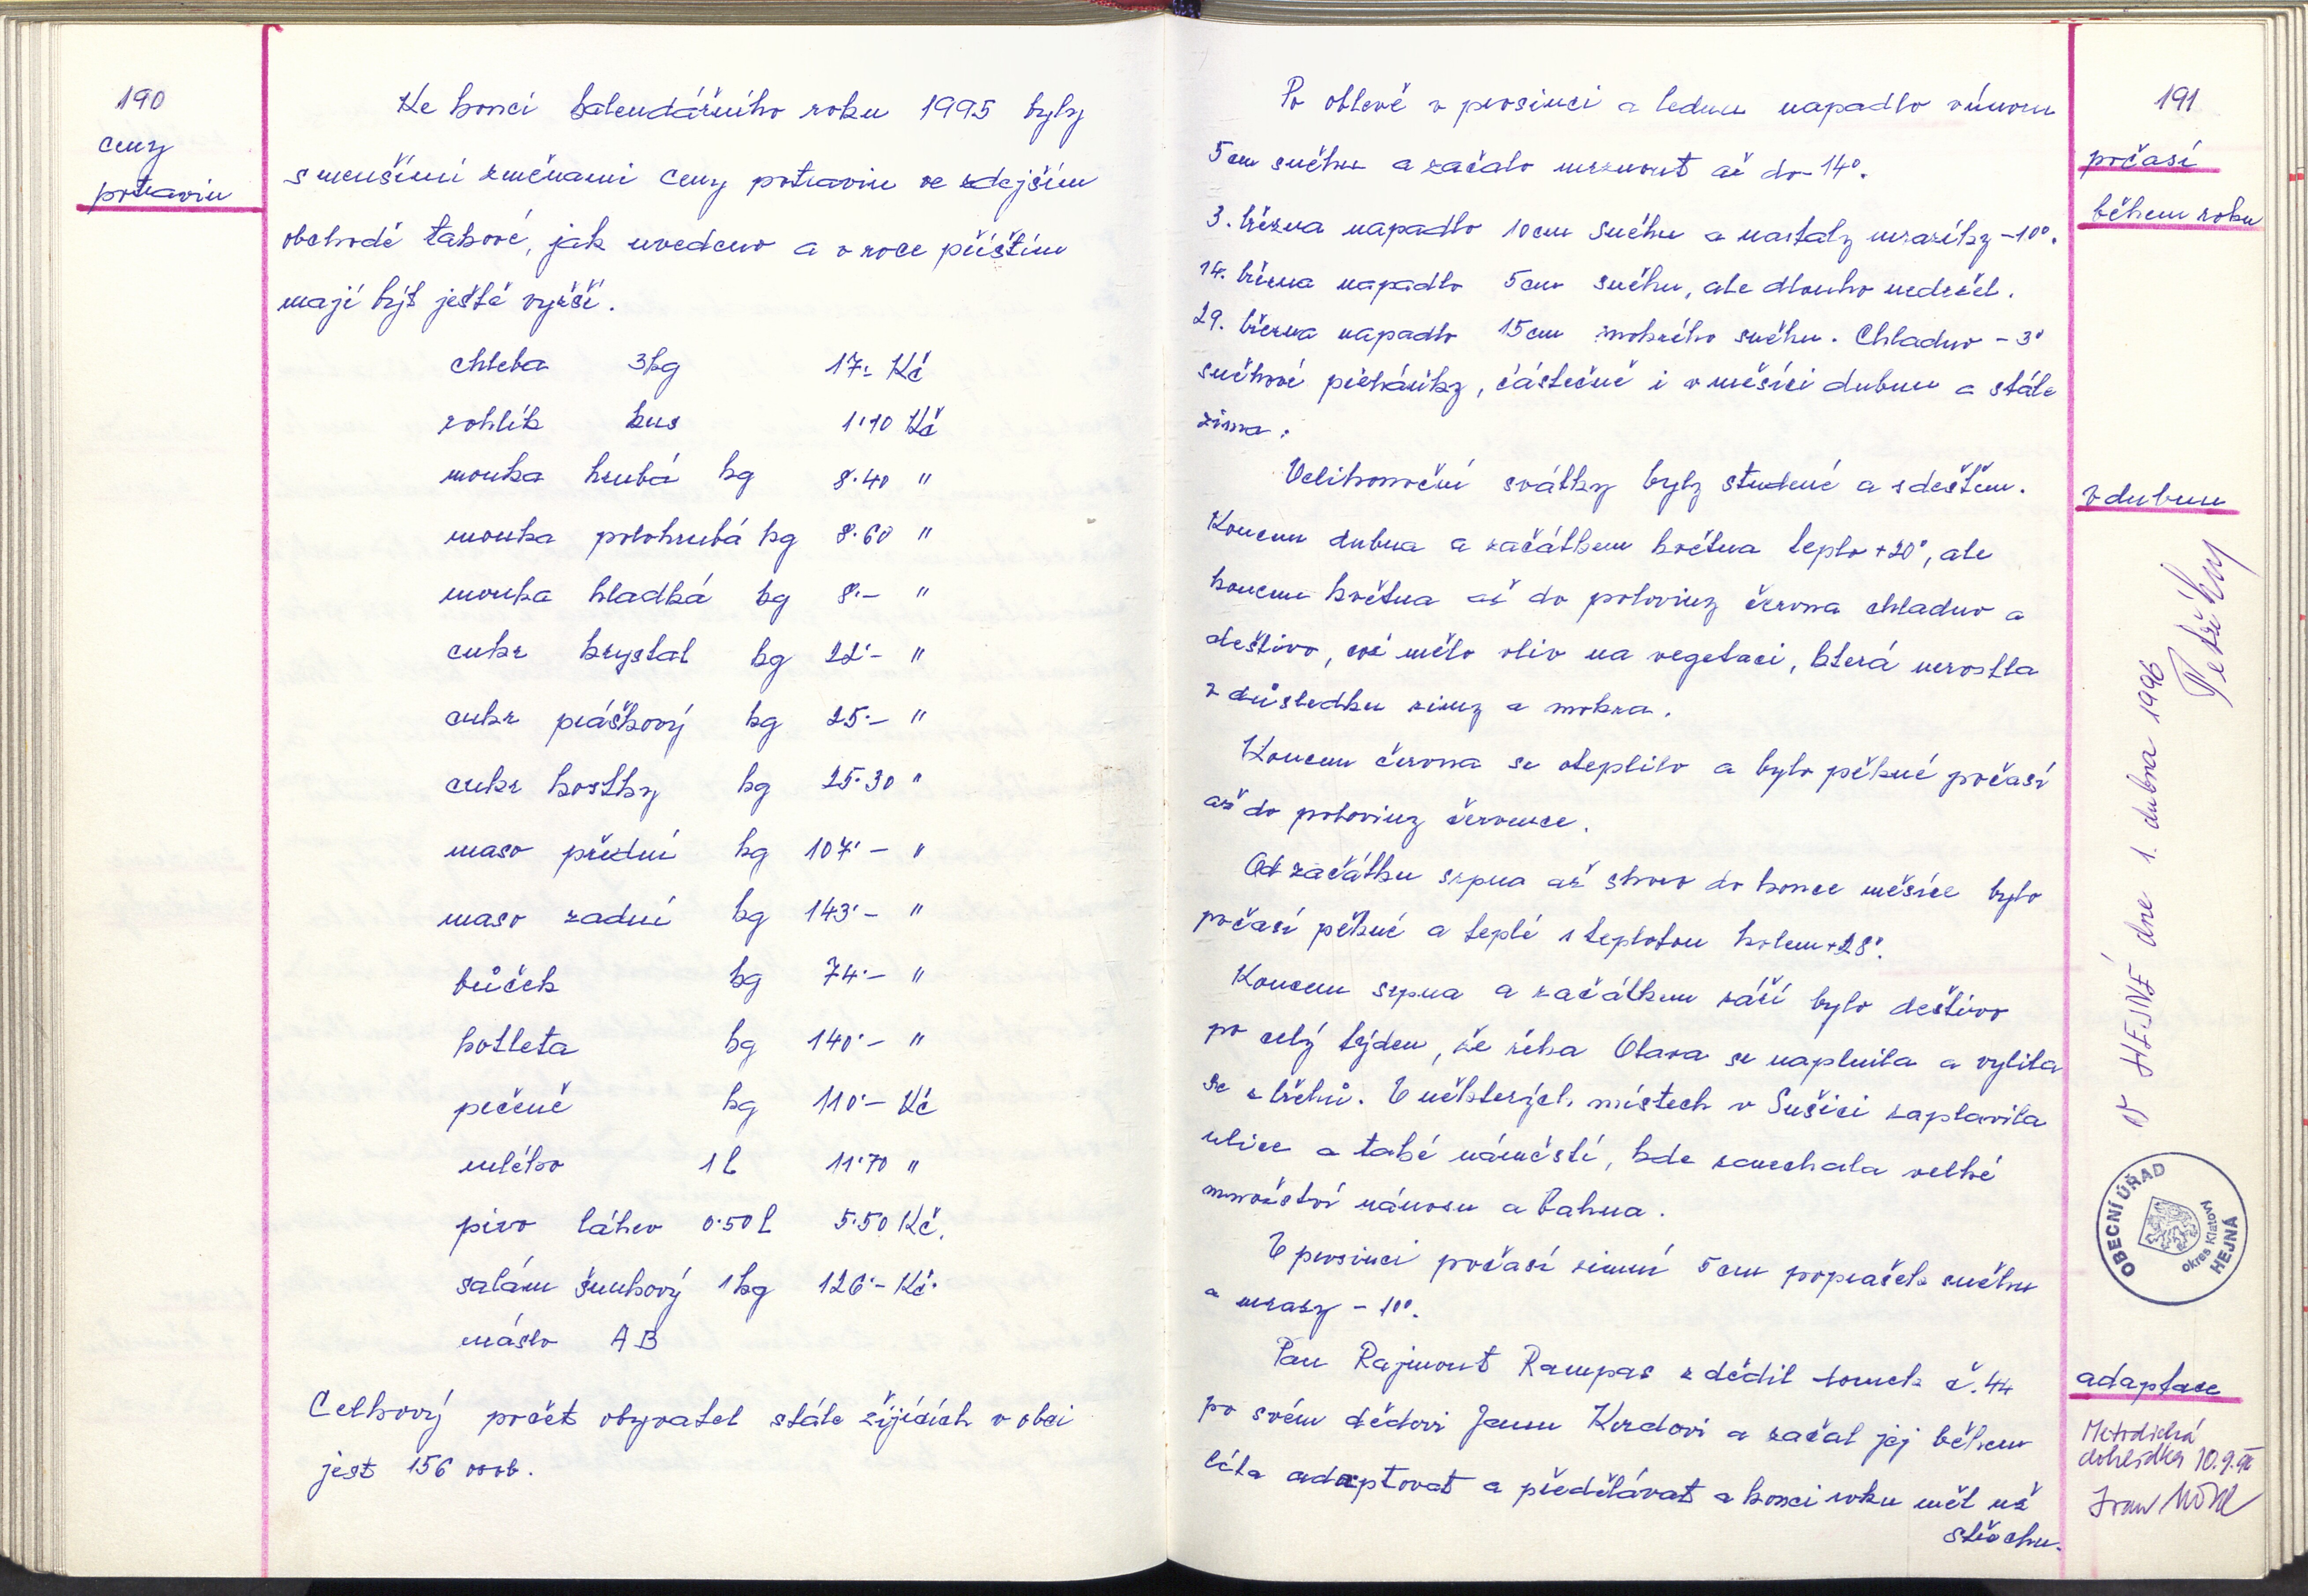 190
ceny
potravin
Ke konci kalendářního roku 1995 byly
s menšími změnami ceny potravin ve zdejším
obchodě takové, jak uvedeno a v roce příštím
mají být ještě vyšší.
chleba 3kg 17.- Kč
rohlík kus 1·10 Kč
mouka hrubá kg 8·40 "
mouka polohrubá kg 8·60 "
mouka hladká kg 8·- "
cukr krystal kg 22·- "
cukr práškový kg 25·- "
cukr kostky kg 25·30 "
maso přední kg 107·- "
maso zadní kg 143·- "
bůček kg 74·- "
kotleta kg 140·- "
pečeně kg 110·- Kč
mléko 1 l 11·70 "
pivo láhev 0·50 l 5·50 Kč.
salám šunkový 1kg 126·- Kč.
máslo AB
Celkový počet obyvatel stále žijících v obci
jest 156 osob.
191
počasí
během roku
Po oblevě v prosinci a lednu napadlo v únoru
5 cm sněhu a začalo mrznout až do -14°.
3. března napadlo 10cm sněhu a nastaly mrazíky -10°.
14. března napadlo 5cm sněhu, ale dlouho nedržel.
29. března napadlo 15cm mokrého sněhu. Chladno -3°
sněhové přeháňky, částečně i v měsíci dubnu a stále
zima.
v dubnu
Velikonoční svátky byly studené a s deštěm.
Koncem dubna a začátkem května teplo +20°, ale
koncem května až do poloviny června chladno a
deštivo, což mělo vliv na vegetaci, která nerostla
v důsledku zimy a mokra.
Koncem června se oteplilo a bylo pěkné počasí
až do poloviny července.
Od začátku srpna až skoro do konce měsíce bylo
počasí pěkné a teplé s teplotou kolem +28°.
Koncem srpna a začátkem září bylo deštivo
po celý týden, že řeka Otava se naplnila a vylila
se z břehů. V některých místech v Sušici zaplavila
ulice a také náměstí, kde zanechala velké
množství nánosu a bahna.
V prosinci počasí zimní 5cm poprašek sněhu
a mrazy -10°.
adaptace
Pan Rajmont Rampas zdědil domek č. 44
po svém dědovi Janu Kurdovi a začal jej během
léta adaptovat a předělávat a konci roku měl už
střechu.
V HEJNÉ dne 1. dubna 1996
OBECNÍ ÚŘAD
HEJNÁ
okres Klatovy
Metodická
dohlídka 10.9.96